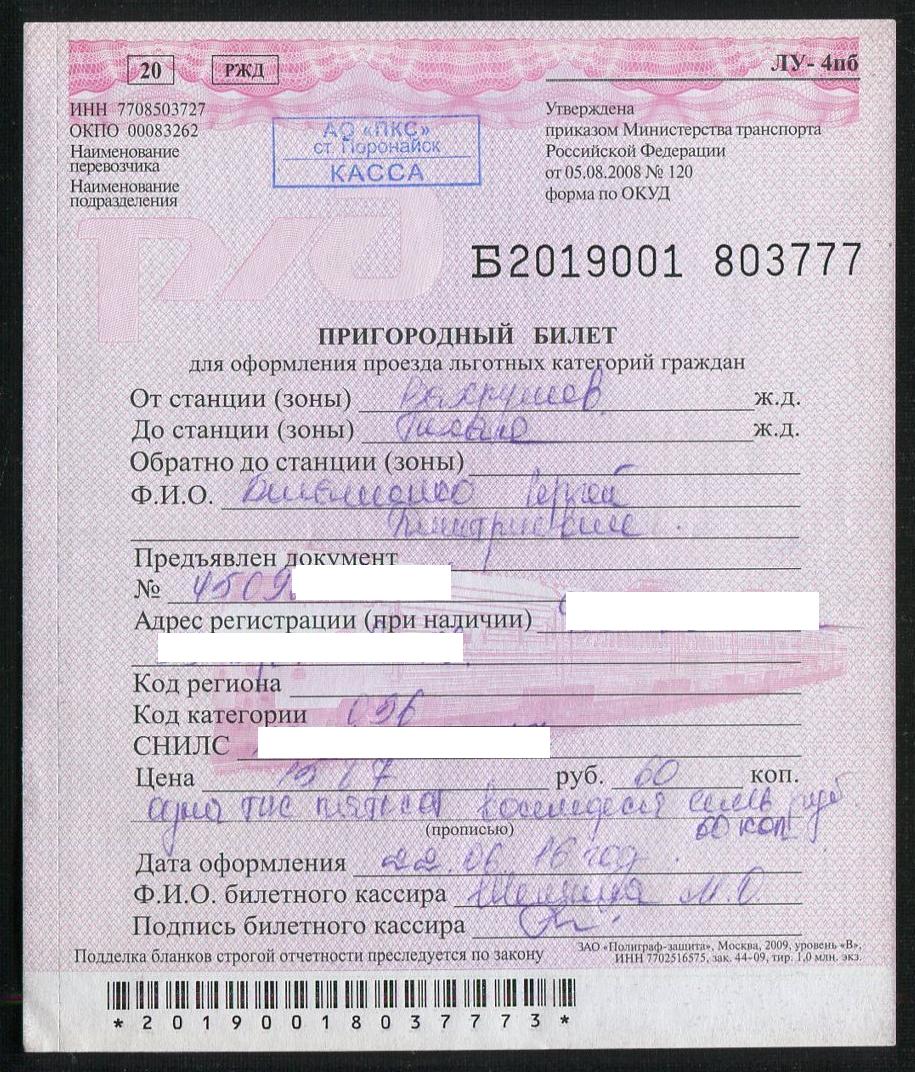 20 РЖД ЛУ- 4пб
ИНН 7708503727
ОКПО 00083262
Наименование
перевозчика
Наименование
подразделения
АО «ПКС»
ст. Поронайск
КАССА
Утверждена
приказом Министерства транспорта
Российской Федерации
от 05.08.2008 № 120
форма по ОКУД
Б2019001 803777
ПРИГОРОДНЫЙ БИЛЕТ
для оформления проезда льготных категорий граждан
От станции (зоны) Вахрушев ж.д.
До станции (зоны) Тихая ж.д.
Обратно до станции (зоны)
Ф.И.О. Сергей
Дмитриевич
Предъявлен документ
№ 4509
Адрес регистрации (при наличии)
Код региона
Код категории 096
СНИЛС
Цена 1587 руб. 60 коп.
одна тыс пятьсот восемьдесят семь руб
60 коп
(прописью)
Дата оформления 22.06.16 год
Ф.И.О. билетного кассира М.О.
Подпись билетного кассира
Подделка бланков строгой отчетности преследуется по закону
ЗАО «Полиграф-защита», Москва, 2009, уровень «В»,
ИНН 7702516575, зак. 44-09, тир. 1,0 млн. экз.
*20190018037773*